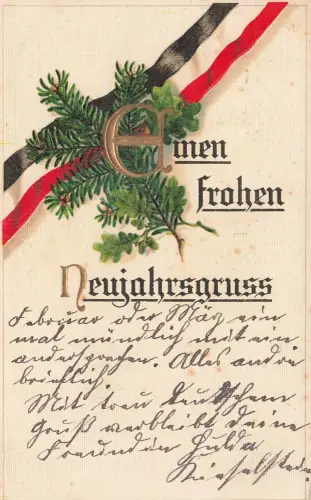 Einen
frohen
Neujahrsgruss
Februar oder März ein
mal mündlich mit ein
ander sprachen. Alles andre
brieflich.
Mit treu deutschem
Gruß verbleibt Deine
Freundin Hulda